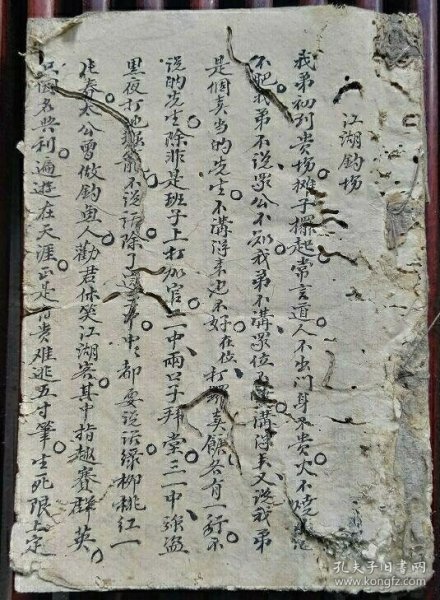 江湖钓场
我弟初到贵场摊子摆起常言道人不出门身不贵火不烧山地
不肥我弟不说众公不知我弟不讲众位讲得来又说我弟
是個卖当的先生不講得来也不好在位打卖各有一行不
说的先生除非是班子上打加官二一中兩口子拜堂三一中強盗
黑夜打地能不说话除了這三中都要说话绿柳桃红一
太公曾做钓鱼人勸君休笑江湖客其中指趣賽群英
只個名與利遍遊在天涯正是贵难逃五寸筆生死限上定
孔夫子旧书网
kongfz.com